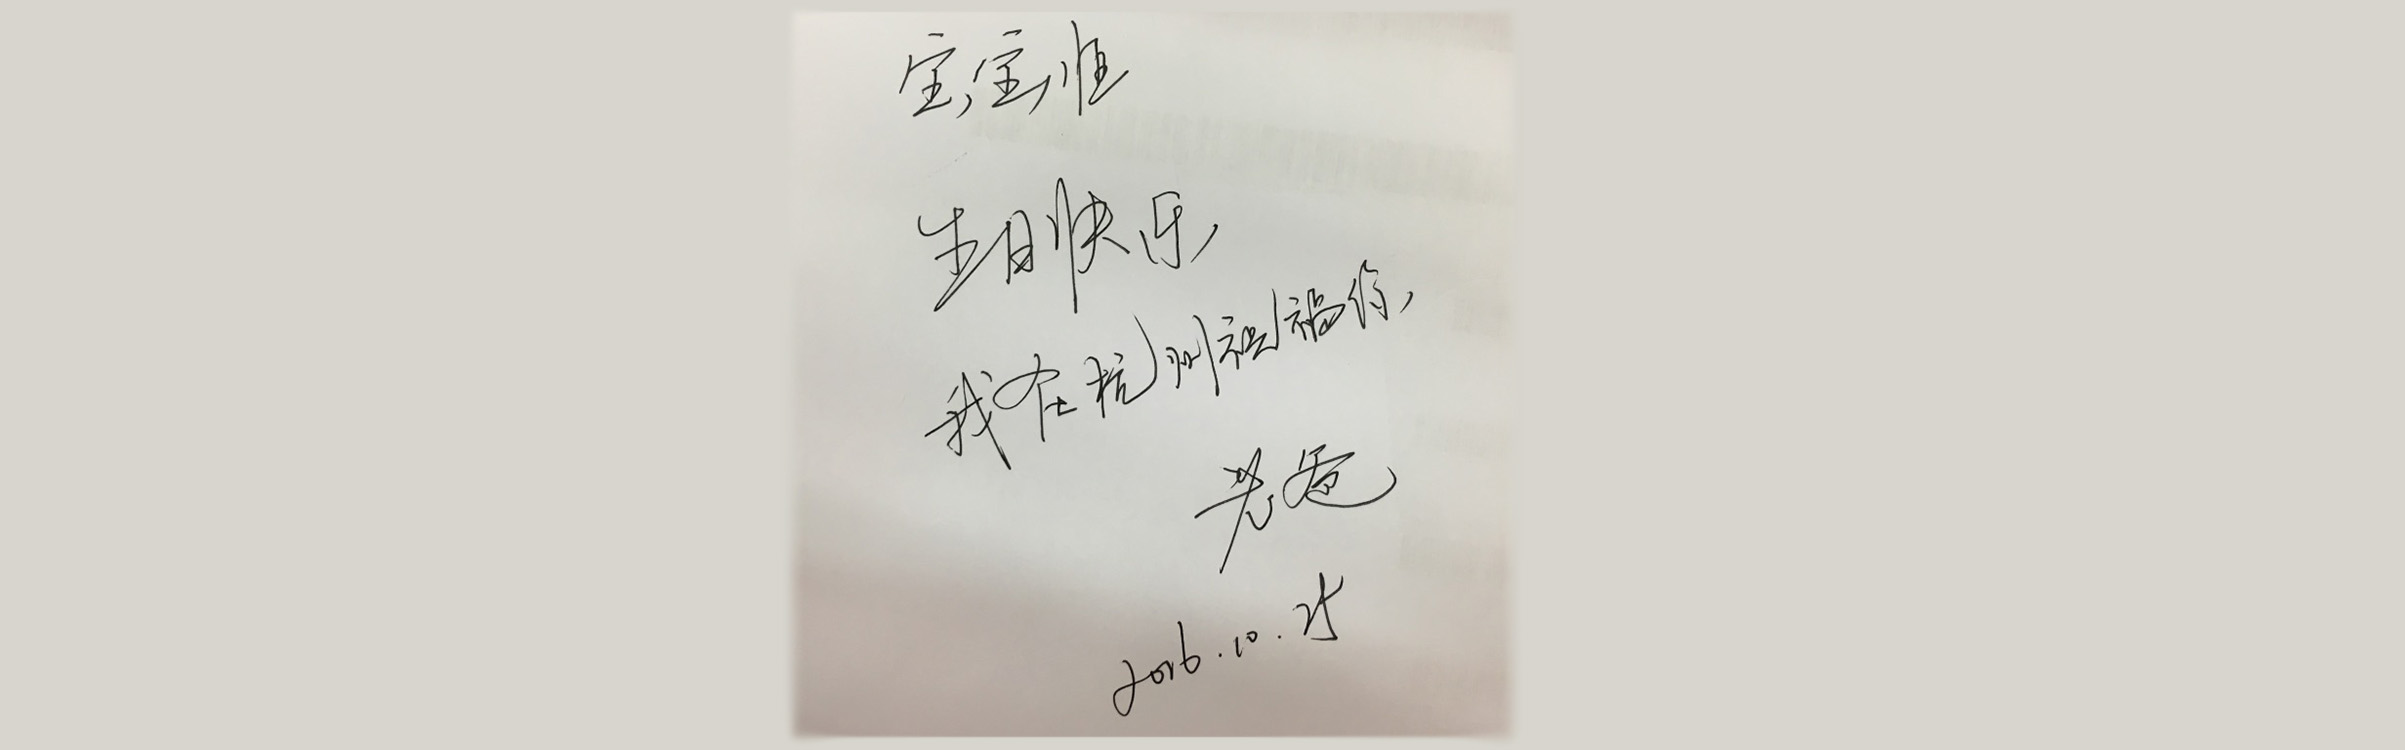 宝宝
生日快乐,
我在杭州祝福你,
老爸
2016.10.25